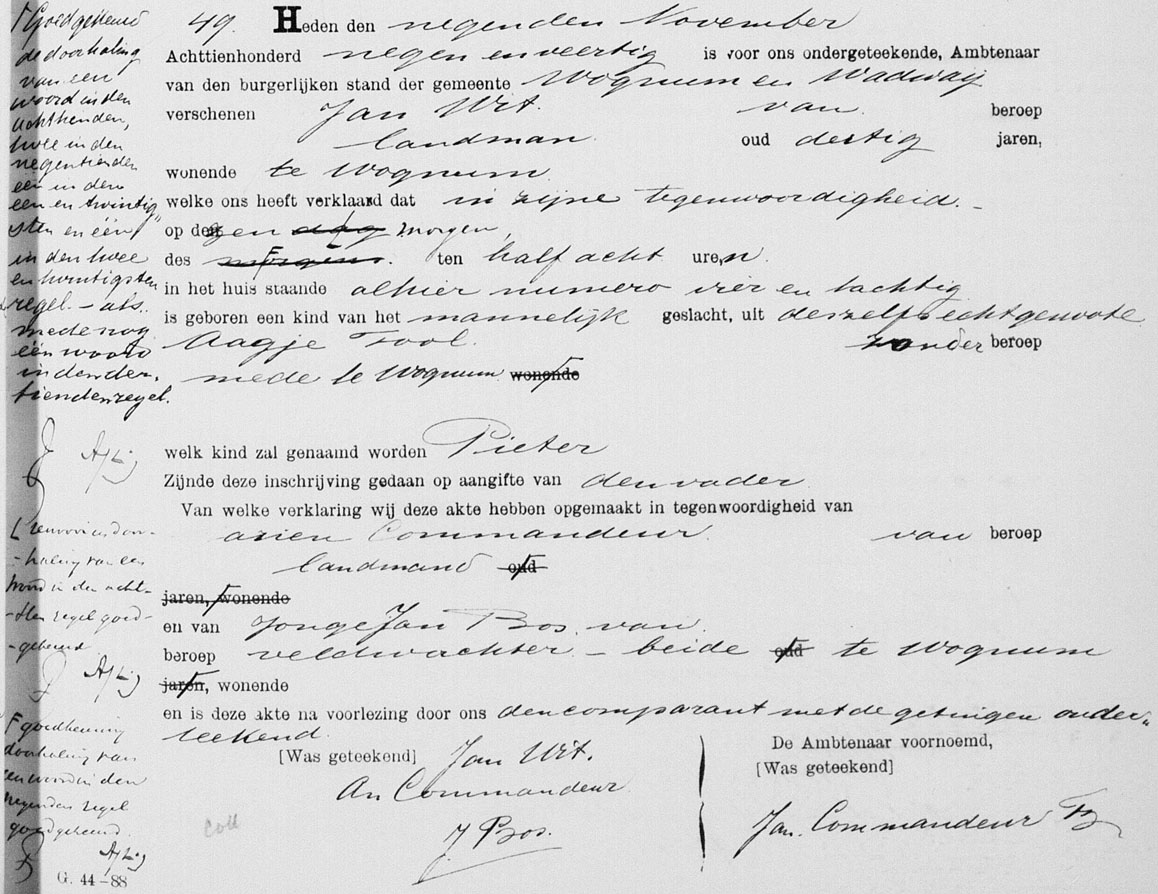 49. Heden den negenden November
Achttienhonderd negen en veertig is voor ons ondergeteekende, Ambtenaar
van den burgerlijken stand der gemeente Wognum en Wadway
verschenen Jan Wit. van beroep
landman. oud dertig jaren,
wonende te Wognum
welke ons heeft verklaard dat in zijne tegenwoordigheid. -
op dezen dag morgen,
des morgens. ten half acht uren.
in het huis staande alhier numero vier en tachtig
is geboren een kind van het mannelijk geslacht, uit deszelfs echtgenoote
Aagje Tool. zonder beroep
mede te Wognum wonende
welk kind zal genaamd worden Pieter
Zijnde deze inschrijving gedaan op aangifte van den vader
Van welke verklaring wij deze akte hebben opgemaakt in tegenwoordigheid van
arien Commandeur. van beroep
landmand oud
jaren, wonende
en van Jonge Jan Bos. van
beroep veldwachter. - beide oud te Wognum
jaren, wonende
en is deze akte na voorlezing door ons den comparant met de getuigen onder-
teekend.
[Was geteekend] Jan Wit.
An Commandeur
J Bos.
De Ambtenaar voornoemd,
[Was geteekend]
Jan. Commandeur
Goedgekeurd
de doorhaling
van een
woord in den
achtsenden,
twee in den
negentienden
een in den
een en twintig
sten en één
in den twee
en twintigsten
regel. - als
mede nog
één woord
in den der,
tienden regel.
haling van een
woord in den acht-
sten regel goed-
gekeurd
goedkeuring
doorhaling van
een woord in den
negenden regel
goedgekeurd.
coll
G. 44-88